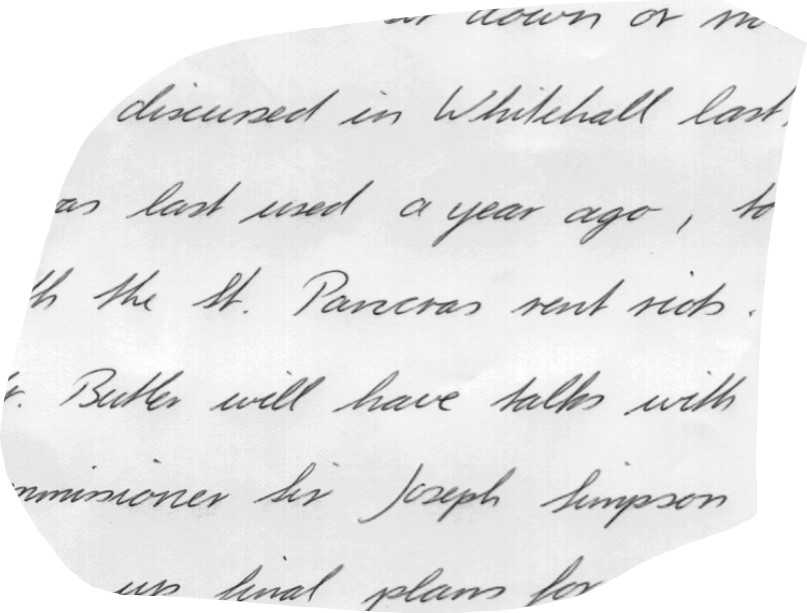 down or
discussed in Whitehall last
last used a year ago, to
the St. Pancras rent riots.
Butler will have talks with
Sir Joseph Simpson
up final plans for